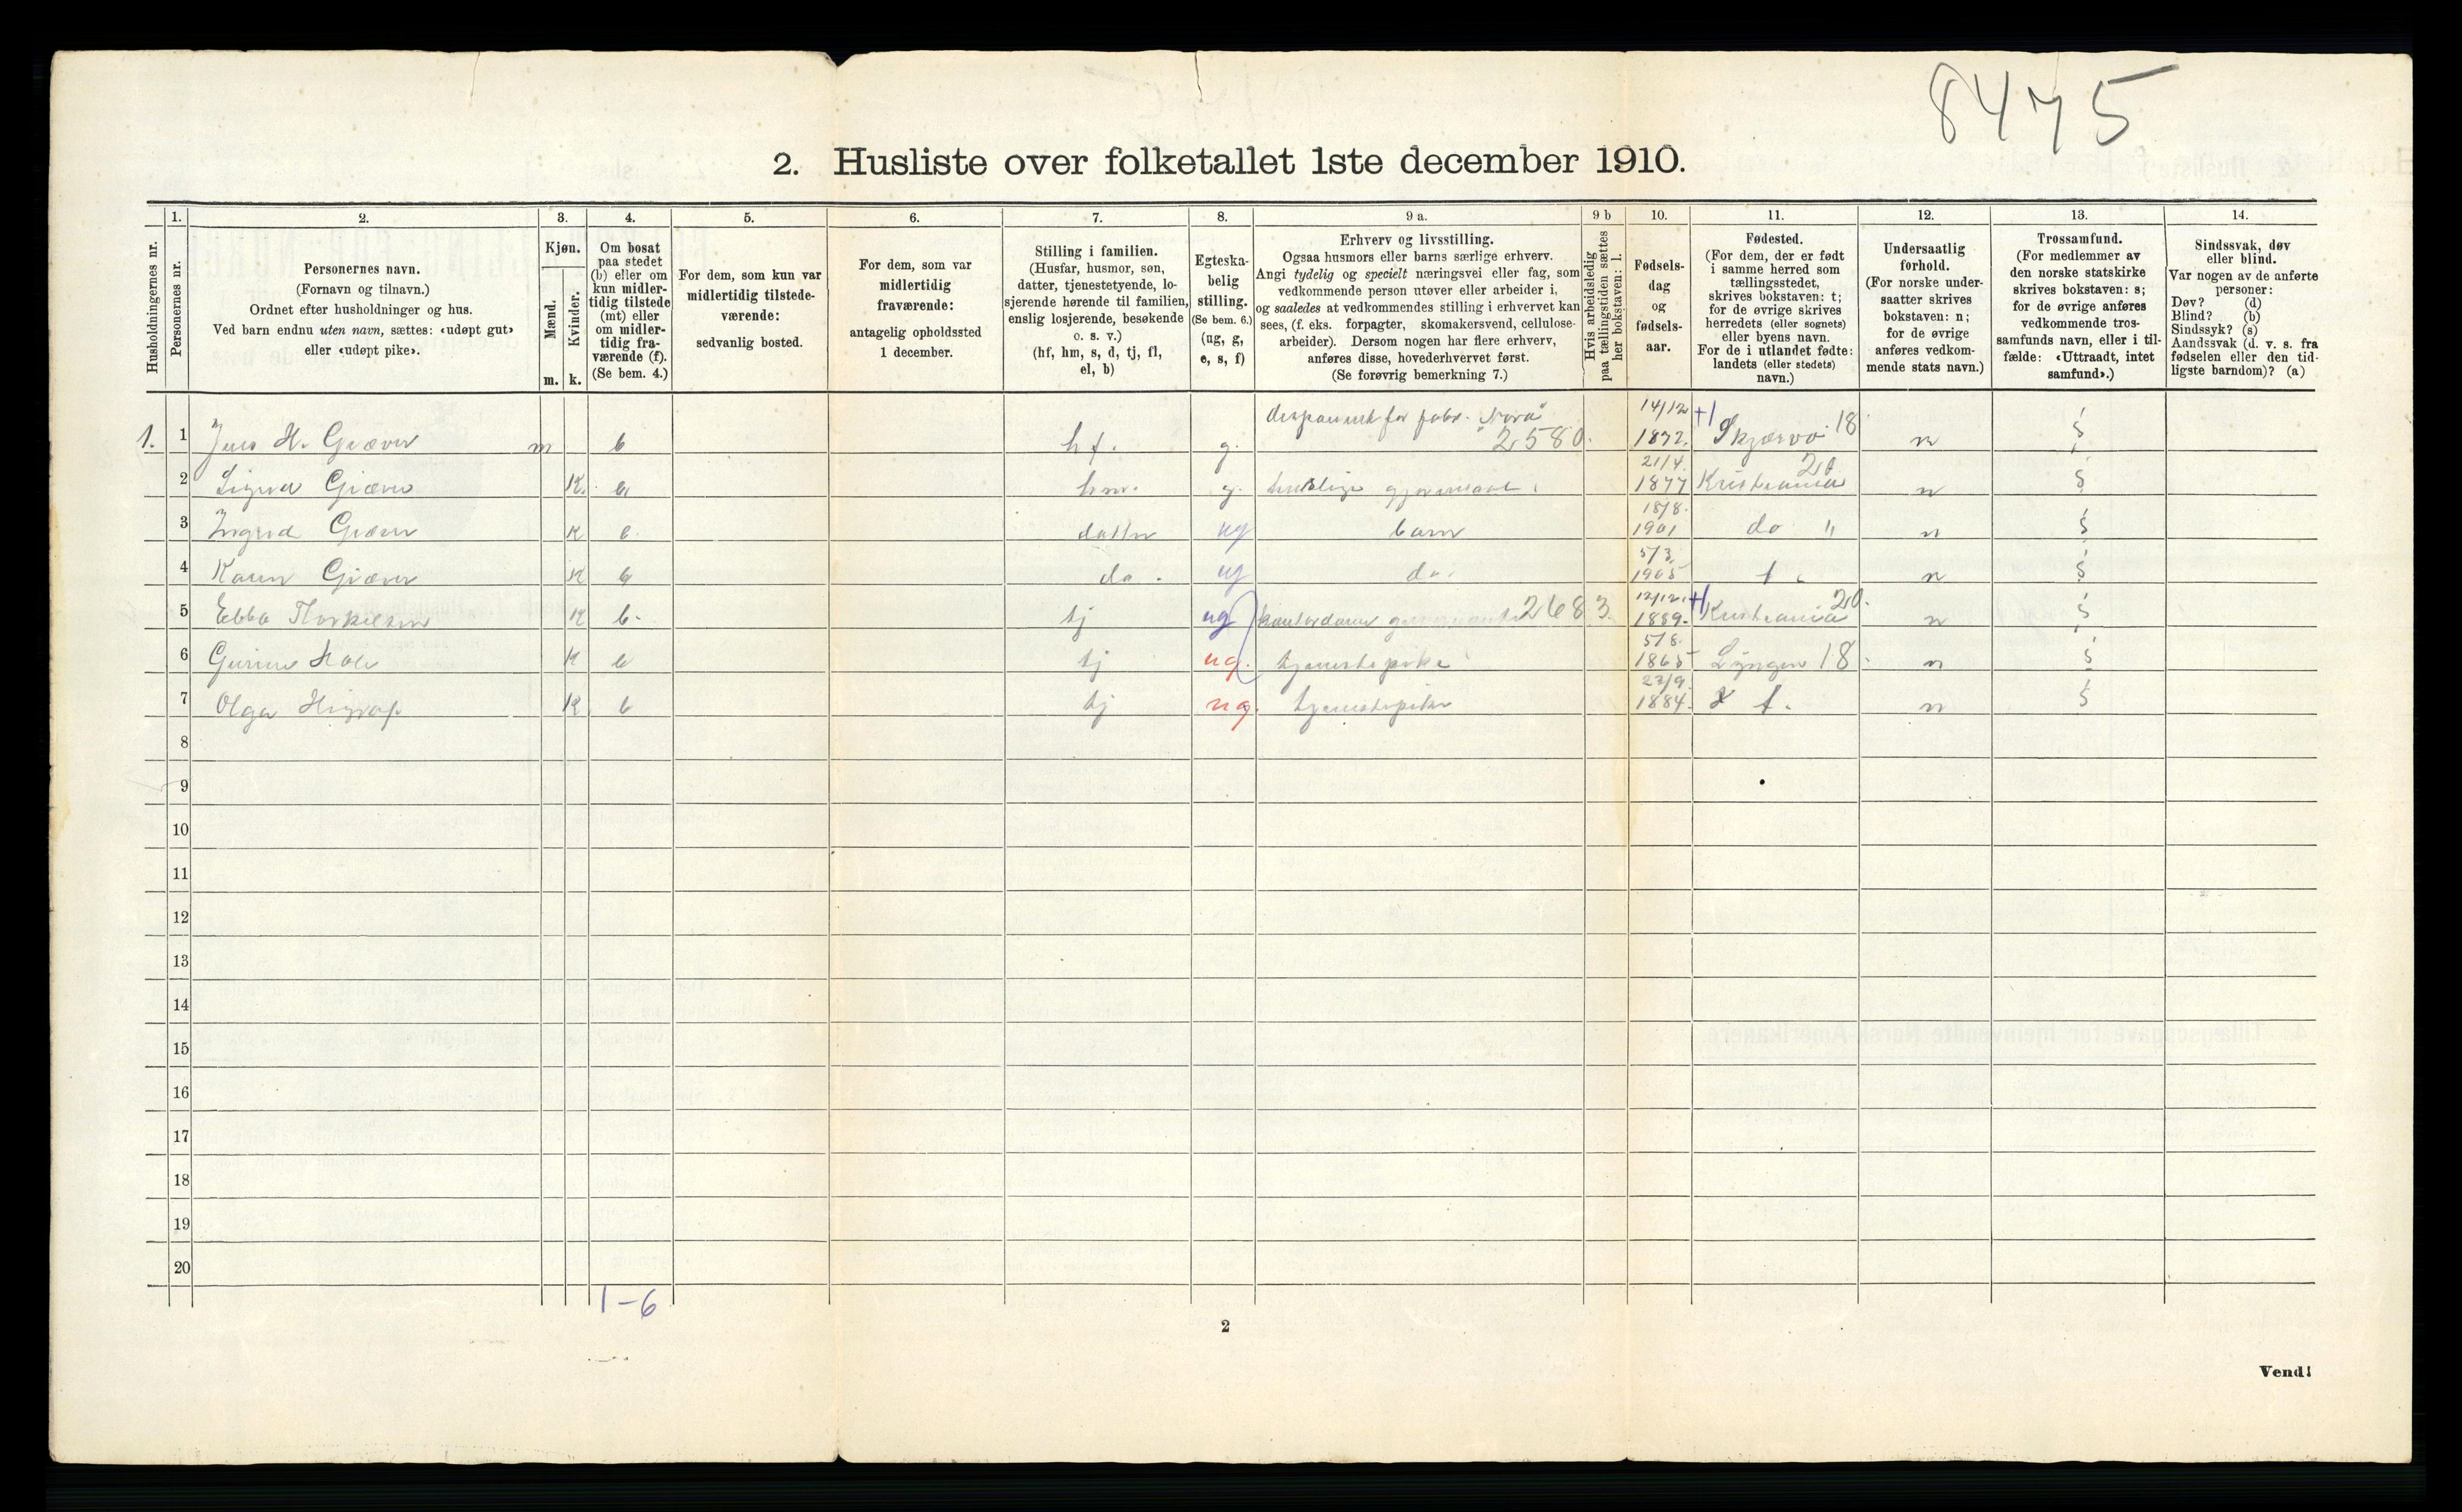 8475
2. Husliste over folketallet 1ste december 1910.
Husholdningernes nr.
1.
Personernes nr.
2.
Personernes navn.
(Fornavn og tilnavn.)
Ordnet efter husholdninger og hus.
Ved barn endnu uten navn, sættes: «udøpt gut»
eller «udøpt pike».
3.
Kjøn.
Mænd.
Kvinder.
m. k.
4.
Om bosat
paa stedet
(b) eller om
kun midler-
tidig tilstede
(mt) eller
om midler-
tidig fra-
værende (f).
(Se bem. 4.)
5.
For dem, som kun var
midlertidig tilstede-
værende:
sedvanlig bosted.
6.
For dem, som var
midlertidig
fraværende:
antagelig opholdssted
1 december.
7.
Stilling i familien.
(Husfar, husmor, søn,
datter, tjenestetyende, lo-
sjerende hørende til familien,
enslig losjerende, besøkende
o. s. v.)
(hf, hm, s, d, tj, fl,
el, b)
8.
Egteska-
belig
stilling.
(Se bem. 6.)
(ug, g,
e, s, f)
9 a.
Erhverv og livsstilling.
Ogsaa husmors eller barns særlige erhverv.
Angi tydelig og specielt næringsvei eller fag, som
vedkommende person utøver eller arbeider i,
og saaledes at vedkommendes stilling i erhvervet kan
sees, (f. eks. forpagter, skomakersvend, cellulose-
arbeider). Dersom nogen har flere erhverv,
anføres disse, hovederhvervet først.
(Se forøvrig bemerkning 7.)
9 b
Hvis arbeidsledig
paa tællingstiden sættes
her bokstaven: l.
10.
Fødsels-
dag
og
fødsels-
aar.
11.
Fødested.
(For dem, der er født
i samme herred som
tællingsstedet,
skrives bokstaven: t;
for de øvrige skrives
herredets (eller sognets)
eller byens navn.
For de i utlandet fødte:
landets (eller stedets)
navn.)
12.
Undersaatlig
forhold.
(For norske under-
saatter skrives
bokstaven: n;
for de øvrige
anføres vedkom-
mende stats navn.)
13.
Trossamfund.
(For medlemmer av
den norske statskirke
skrives bokstaven: s;
for de øvrige anføres
vedkommende tros-
samfunds navn, eller i til-
fælde: «Uttraadt, intet
samfund».)
14.
Sindssvak, døv
eller blind.
Var nogen av de anførte
personer:
Døv? (d)
Blind? (b)
Sindssyk? (s)
Aandssvak (d. v. s. fra
fødselen eller den tid-
ligste barndom)? (a)
1. 1 Jens H. Giæver m b hf. g. for fabr. "Nora" 2580. 14/12 1872. Skjærvø 18 n s
2 Signe Giæver K. b hm. g. huslige 21/4. 1877 Kristiania 20 n s
3 Ingrid Giæver K b. datter ug barn 18/8. 1901 do " n s
4 Karen Giæver K b do. ug do. 5/3. 1905 t. n s
5 Ebba Torkilsen K b. tj ug 2683. 12/12. 1889. Kristiania 20. n s
6 K b tj ug. tjenestepike 5/8. 1865 Lyngen 18. n s
7 Olga K b tj ug. tjenestepike 23/9. 1884. t. n s
8
9
10
11
12
13
14
15
16
17
18
19
20
1-6
2
Vend!